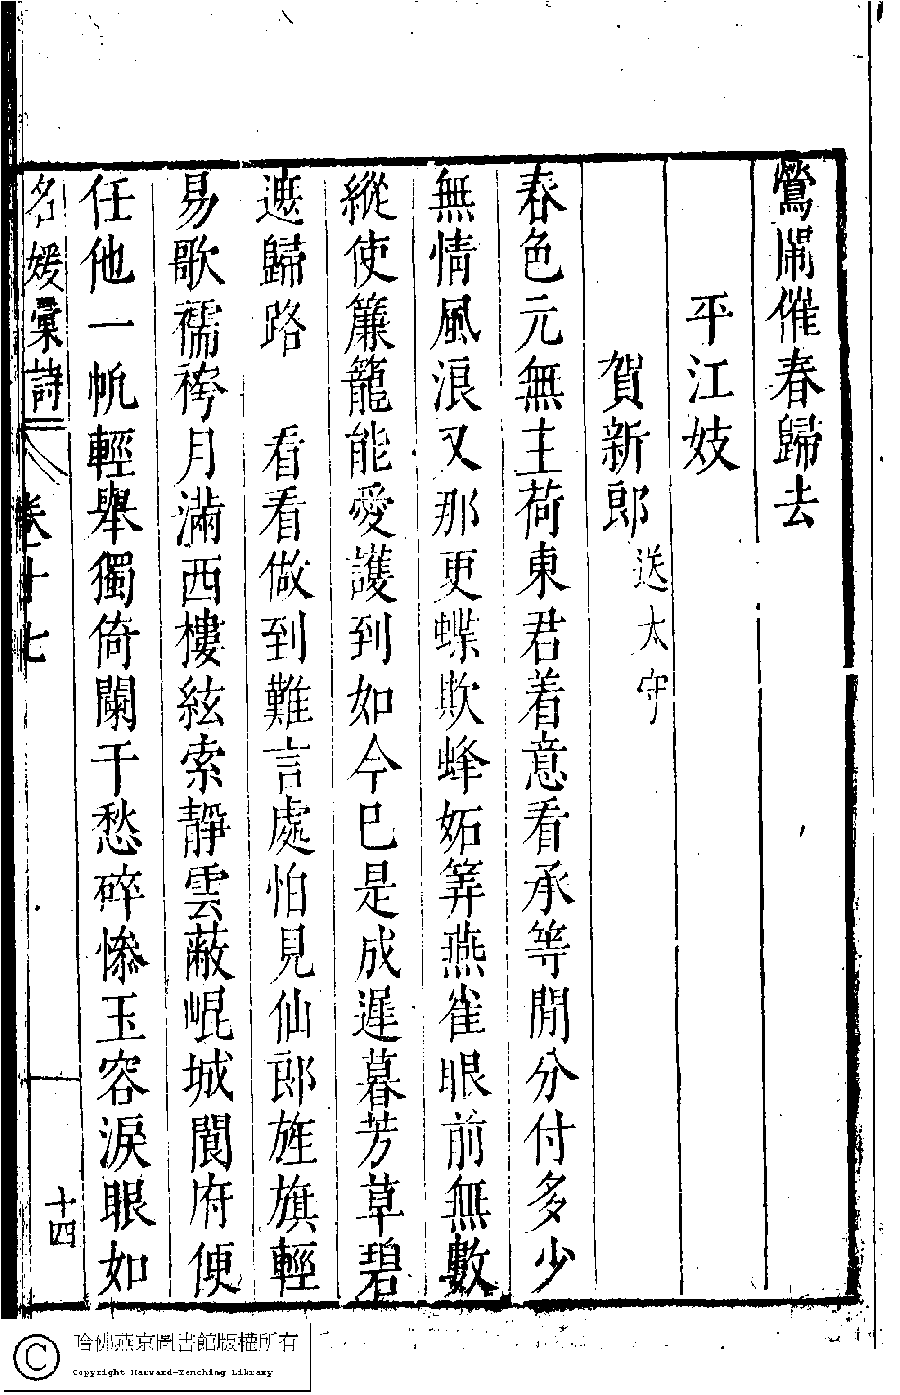 鶯閙催春歸去
平江妓
賀新郎 送太守
春色元無主荷東君着意看承等閒分付多少
無情風浪又那更蝶欺蜂妬筭燕雀眼前無數
縱使簾籠能愛護到如今已是成遲暮芳草碧
遮歸路　看看做到難言處怕見仙郎旌旗輕
易歌襦袴月滿西樓絃索靜雲蔽崐城閬府便
任他一帆輕舉獨倚闌干愁碎慘玉容淚眼如
名媛彙詩 卷十七 十四
哈佛燕京圖書館版權所有
Copyright Harvard-Yenching Library